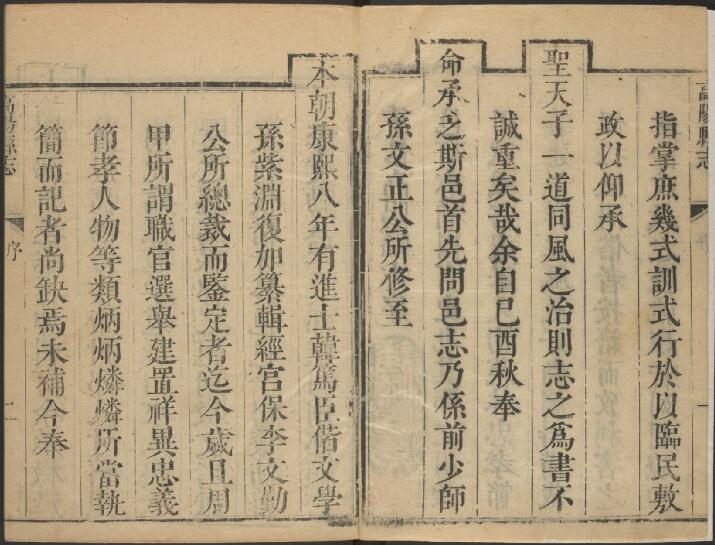 高陽縣志
指掌庶幾式訓式行於以臨民敷
政以仰承
聖天子一道同風之治則志之爲書不
誠重矣哉余自己酉秋奉
命承乏斯邑首先問邑志乃係前少師
孫文正公所修至
本朝康熙八年有進士韓篤臣偕文學
孫紫淵復加纂輯經宫保李文勤
公所總裁而鑒定者迄今歲且周
甲所謂職官選舉建置祥異忠義
節孝人物等類炳炳燐燐所當執
簡而記者尚缺焉未補今奉
高陽縣志
序
二